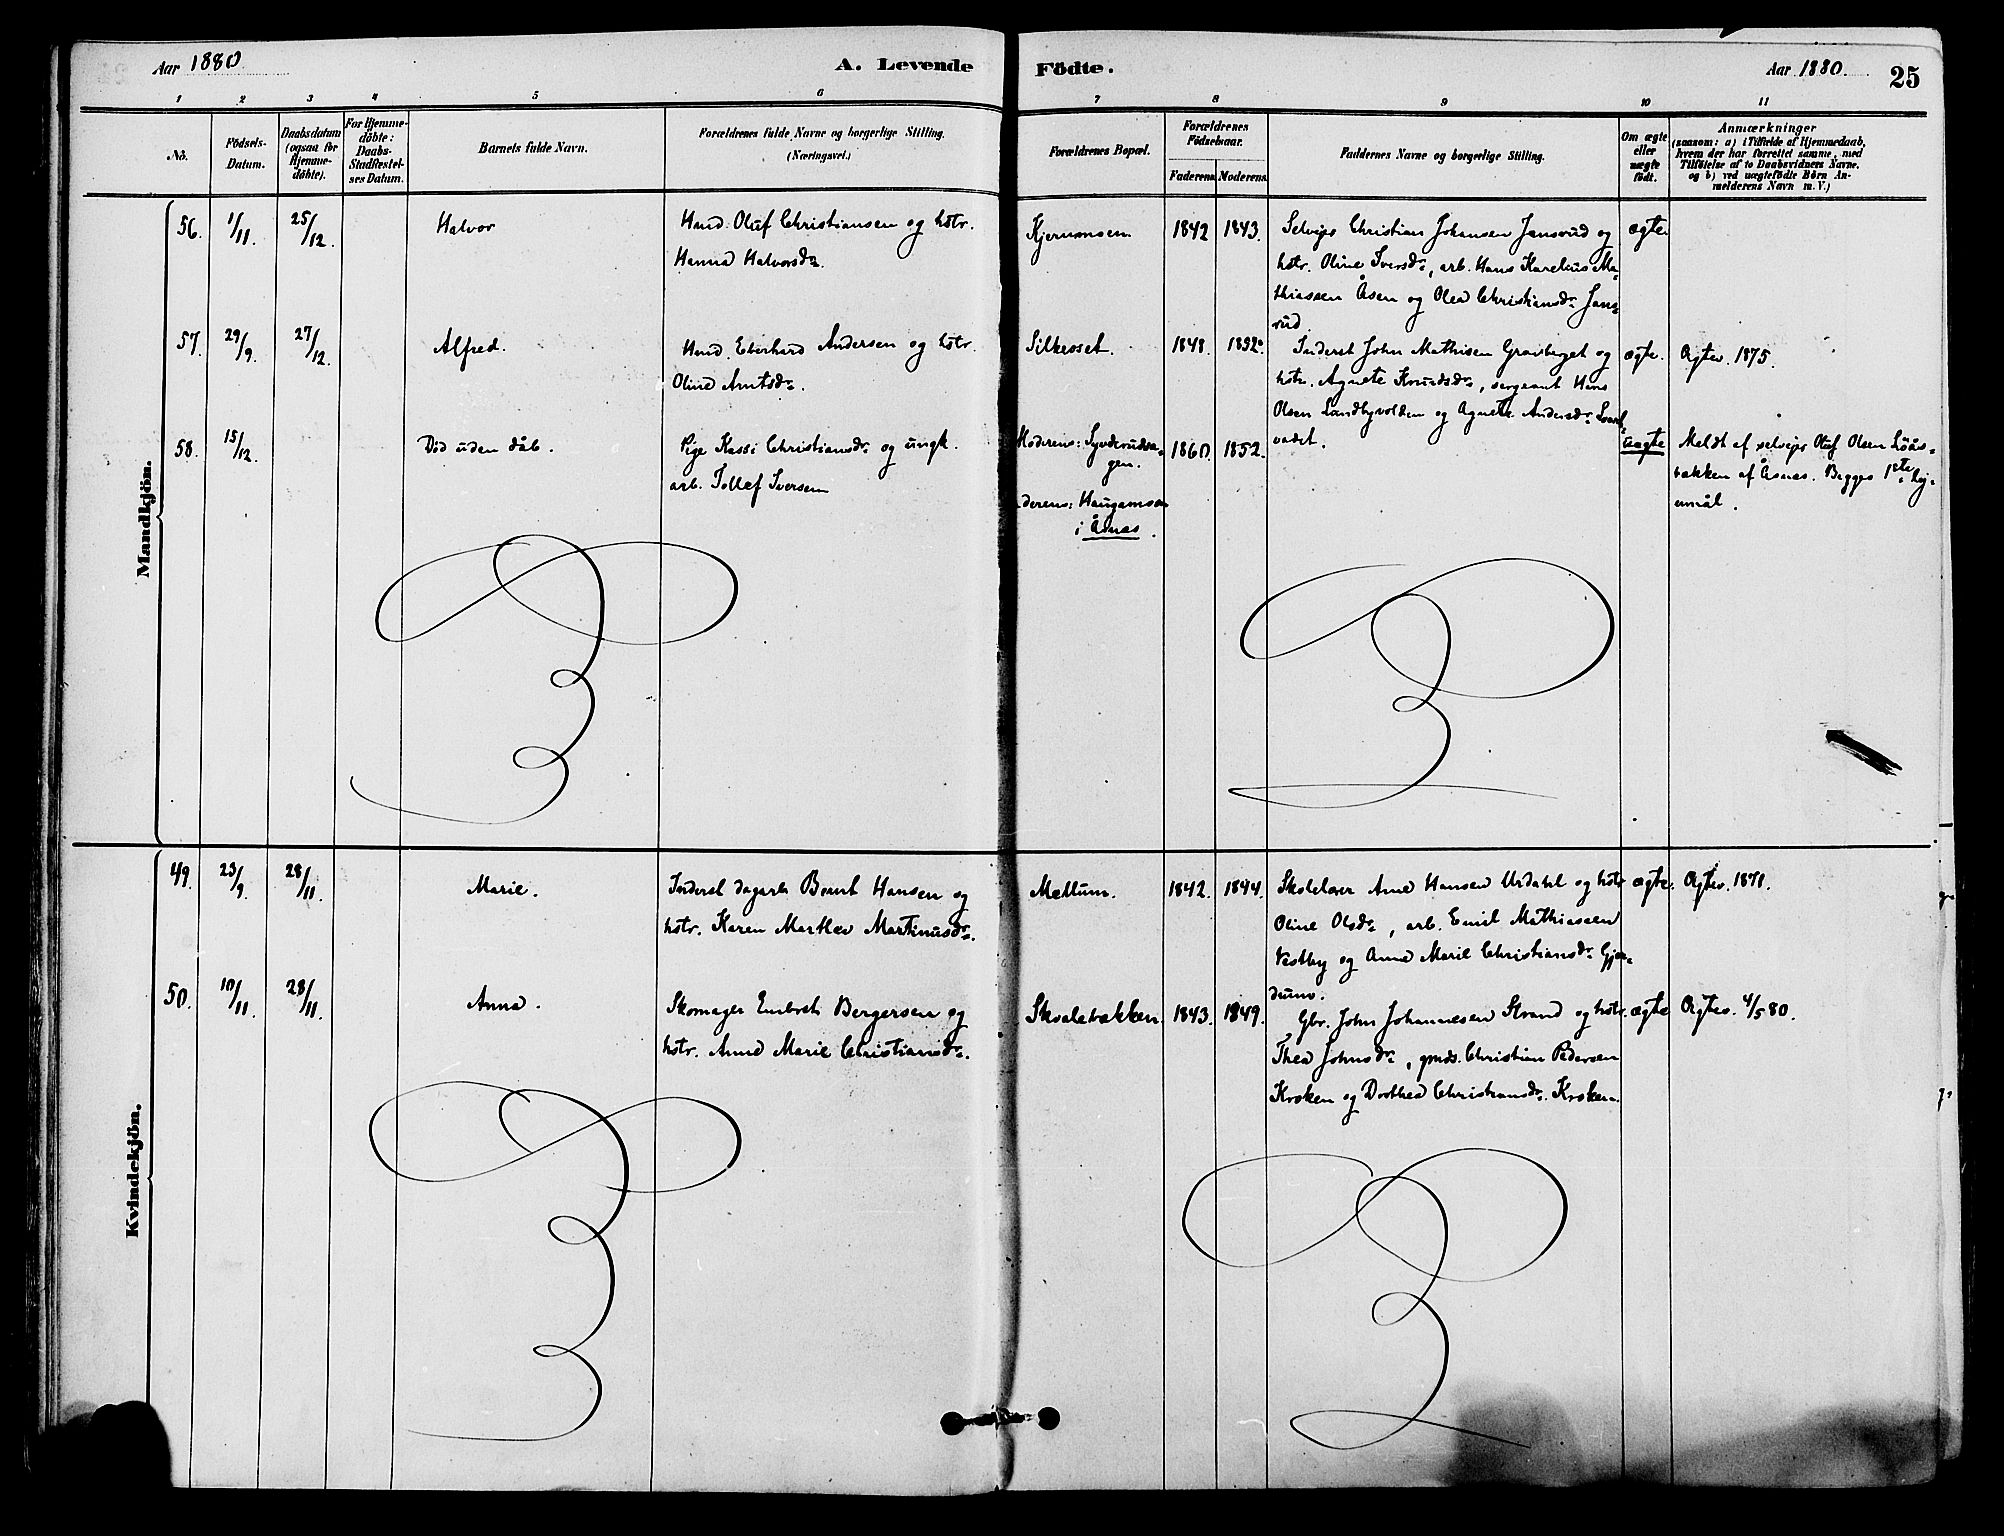 Aar 1880.
A. Levende Födte.
Aar 1880.
25
1 2 3 4 5 6 7 8 9 10 11
No.
Födsels-Datum.
Daabsdatum (ogsaa for Hjemme-döbte).
For Hjemme-döbte: Daabs-Stadfæstel-ses Datum.
Barnets fulde Navn.
Forældrenes fulde Navne og borgerlige Stilling.
(Næringsvei.)
Forældrenes Bopæl.
Forældrenes Födselsaar.
Faderens. Moderens.
Faddernes Navne og borgerlige Stilling.
Om ægte eller uægte födt.
Anmærkninger
(saasom: a) i Tilfælde af Hjemmedaab,
hvem der har forrettet samme, med
Tilföielse af to Daabsvidners Navne,
og b) ved uægtefödte Börn An-
melderens Navn m. V.)
Mandkjön.
56. 1/11. 25/12. Halvor
Hmd. Oluf Christiansen og hstr.
Hanna Halvorsdr.
Kjernmoen 1842 1843.
Selveier Christian Johansen Jansrud og
hstr. Oline Iversdr., arb. Hans Karelius Ma-
thiassen Åsen og Olea Christiansdr. Jans-
rud
ægte
57. 29/9. 27/12. Alfred.
Hmd. Eberhard Andersen og hstr.
Oline Arntsdr.
Silkeoset. 1848. 1852.
Inderst John Mathisen Gravberget og
hstr. Agnete Knudsdr., sergeant Hans
Olsen Landbyvolden og Agnete Andersdr.
vadet.
ægte. Ægtev. 1875.
58. 15/12. Död uden dåb.
Pige Kassi Christiansdr. og ungk.
arb. Tollef Iversen
Moderens:
gen.
derens: Haugamoen
i Åsnes.
1860 1852.
uægte
Meldt af selveier Oluf Olsen Löås-
bakken af Åsnes. Begges 1ste lej-
ermål.
Kvindekjön.
49. 23/9. 28/11. Marie.
Inderst dagarb. Bernt Hansen og
hstr. Karen Marthea Martinusdr.
Mellum. 1842. 1844.
Skolelærer Arne Hansen Urdahl og hstr.
Oline Olsdr., arb. Emil Mathiassen
Vestby og Anne Marie Christiansdr. Gjer-
drum.
ægte. Ægtev. 1871.
50. 10/11. 28/11. Anna.
Skomager Embret Bergersen og
hstr. Anne Marie Christiansdr.
Skolebakken 1843. 1849.
Gbr. John Johannesen Strand og hstr.
Thea Johnsdr., pmds. Christian Pedersen
Kroken og Dorthea Christiansdr. Kroken.
ægte Ægtev. 4/5 80.